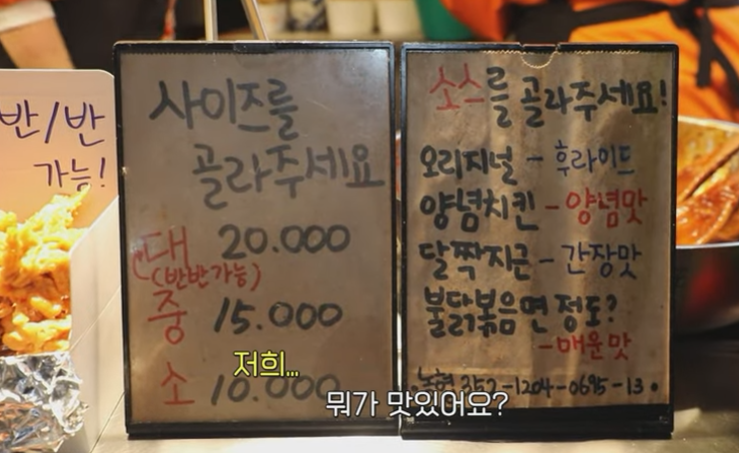 반/반
가능!
사이즈를
골라주세요
대 20.000
(반반가능)
중 15.000
소 10.000
소스를 골라주세요!
오리지널 - 후라이드
양념치킨 - 양념맛
달짝지근 - 간장맛
불닭볶음면 정도?
- 매운맛
농협 352-1204-0695-13
저희...
뭐가 맛있어요?